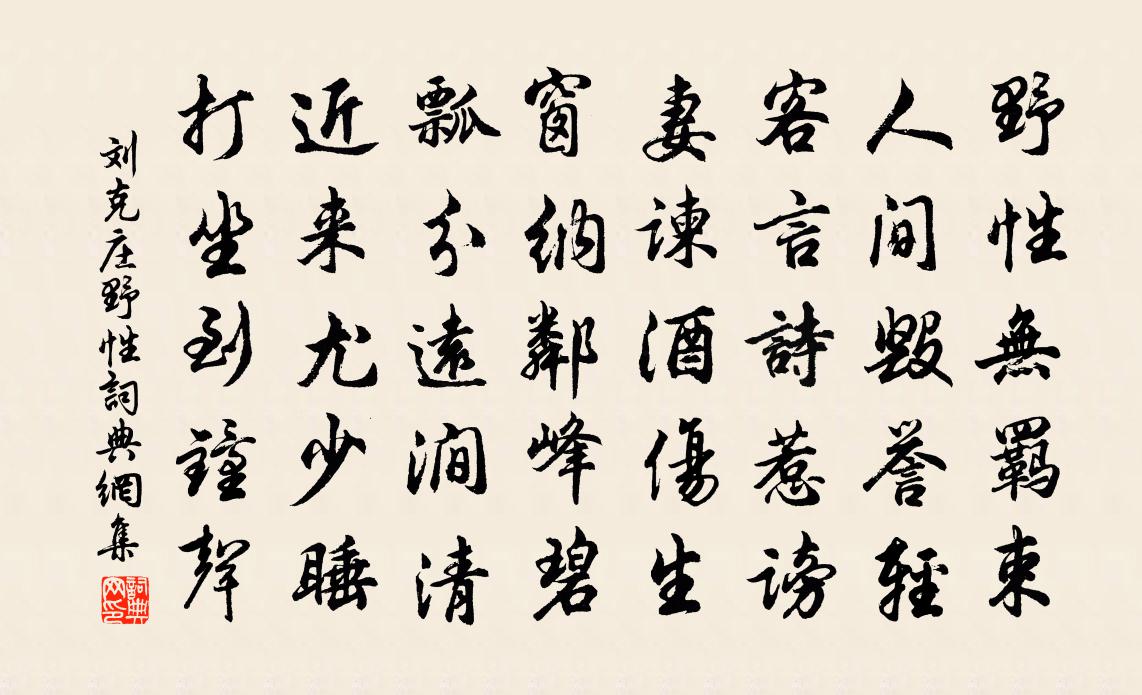 野性無羈束
人间毁譽輕
客言詩惹謗
妻諫酒傷生
窗纳鄰峰碧
瓢分遠澗清
近来尤少睡
打坐到鐘聲
刘克庄野性詞典網集
詞典网印